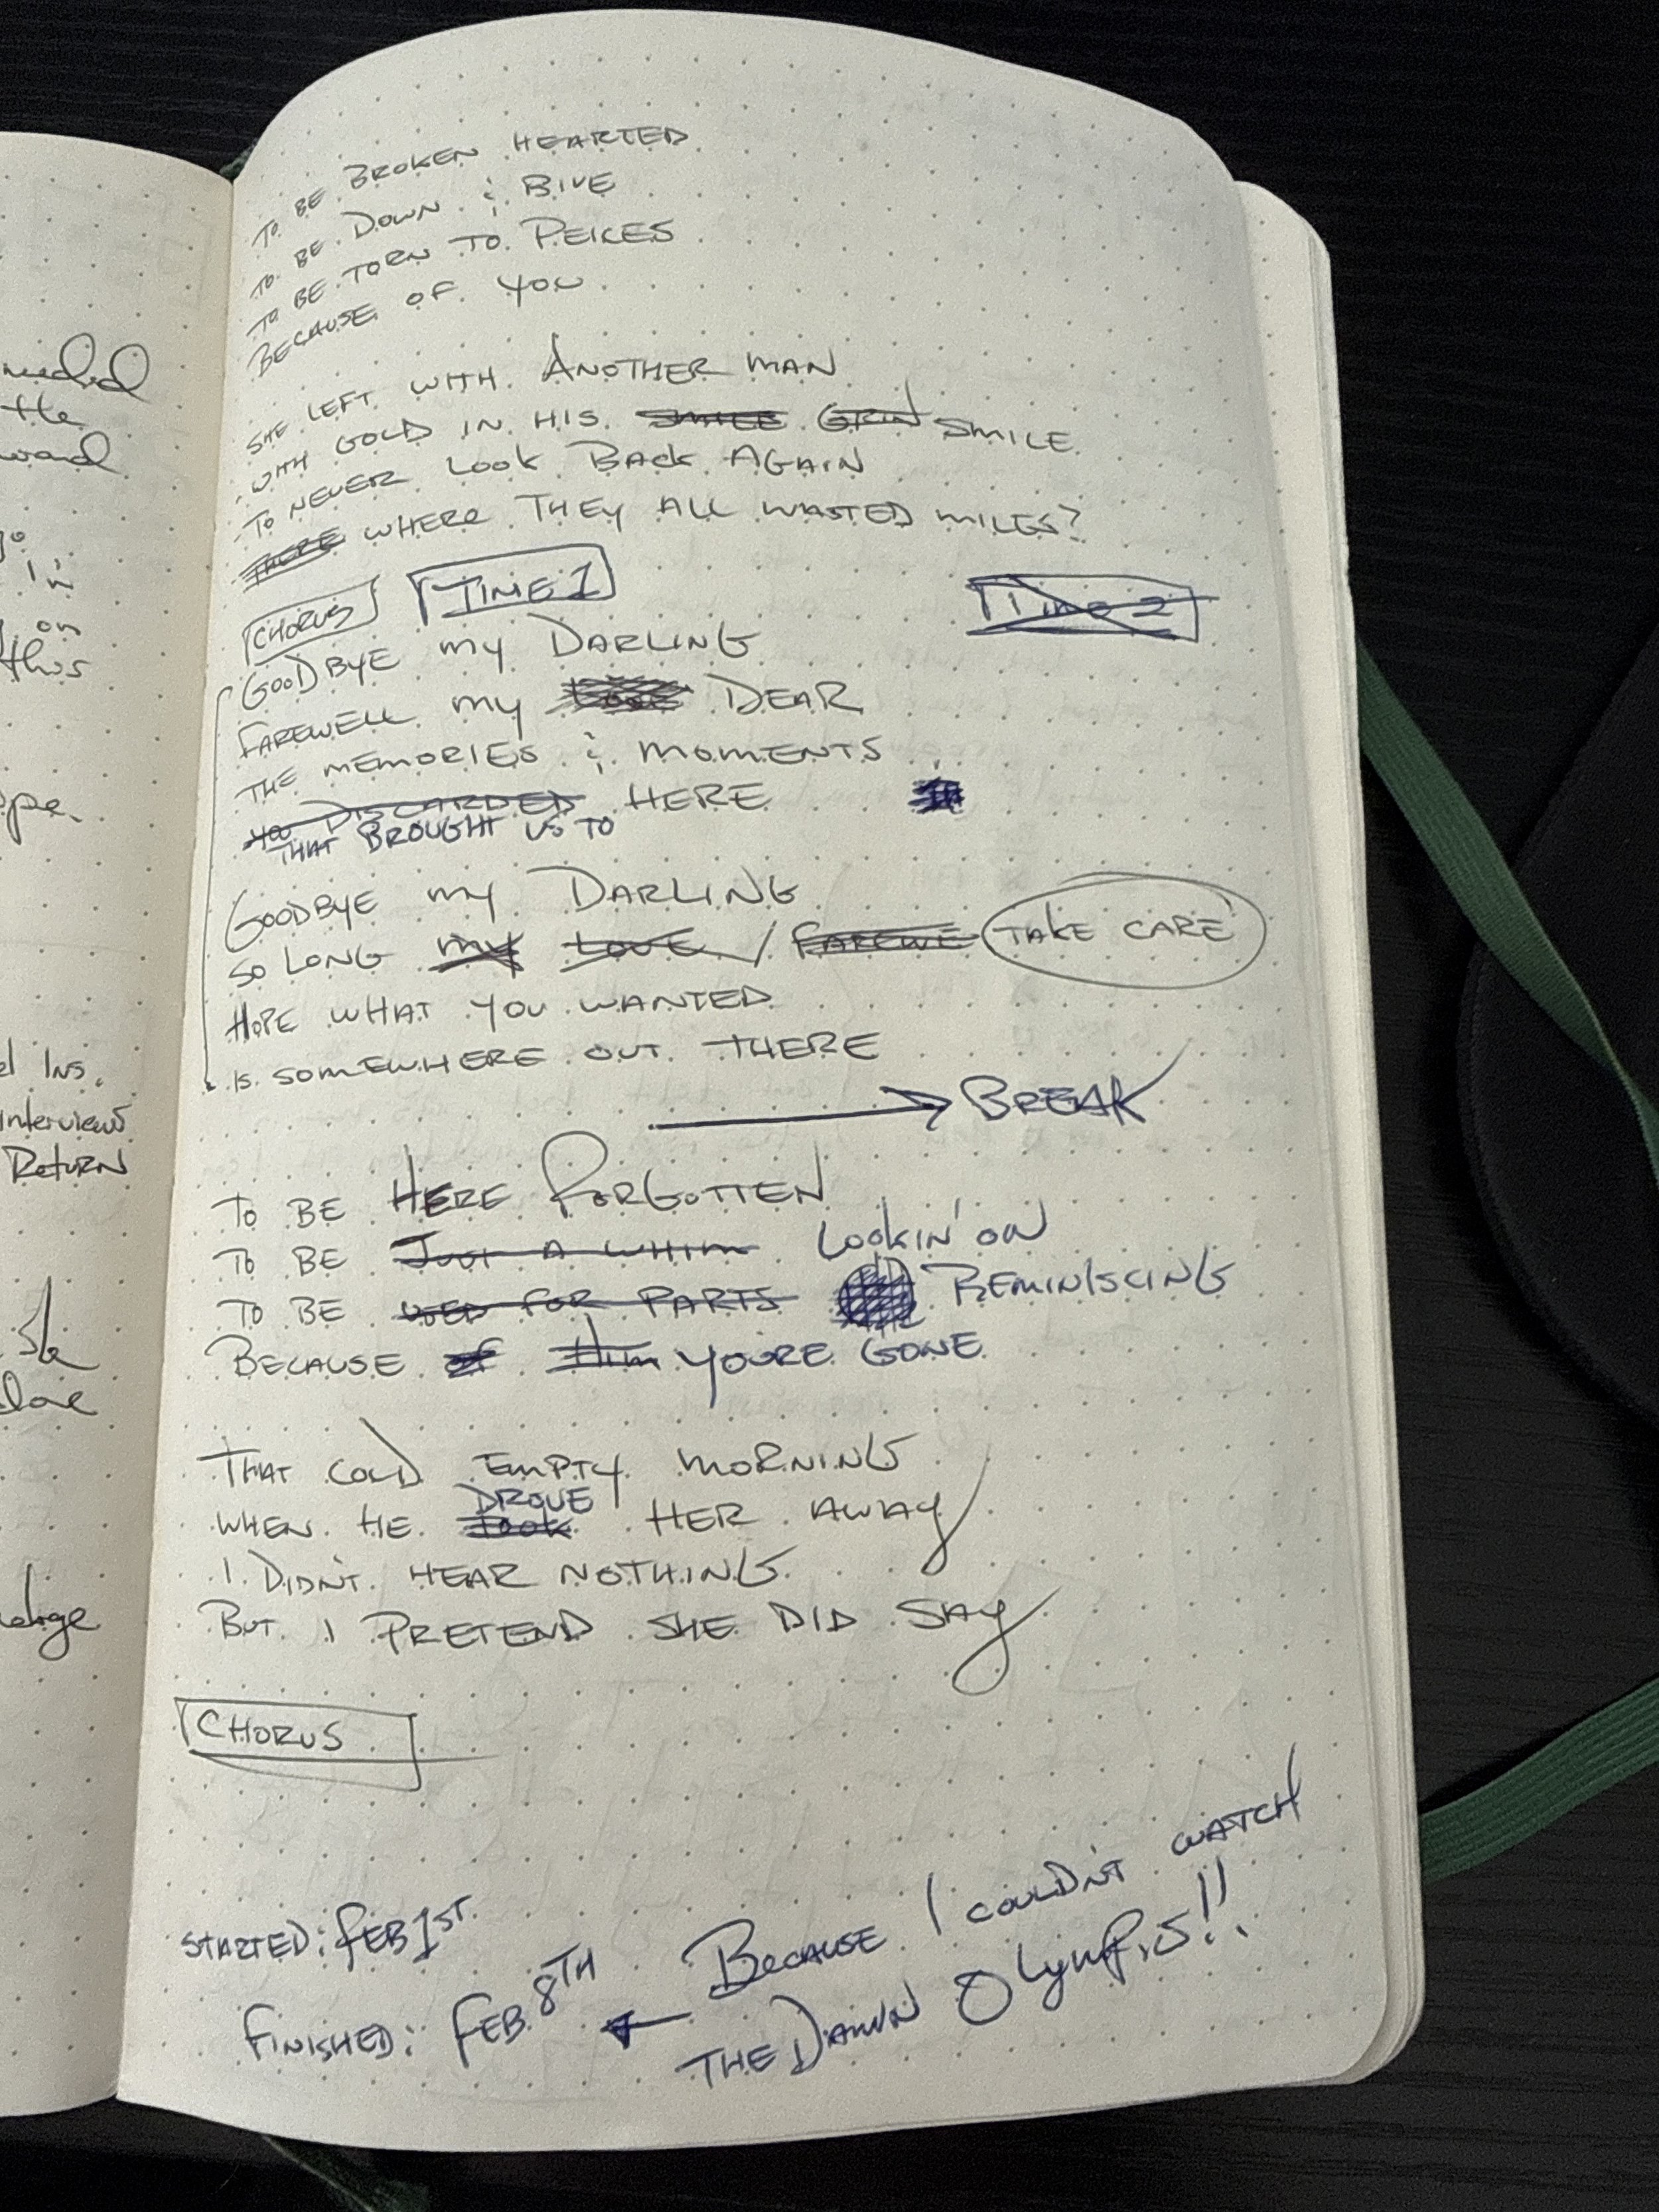 needed
the
ward
go
in
on
this
ope.
el Ins.
interviews
Return
edge
TO BE BROKEN HEARTED
TO BE DOWN & BLUE
TO BE TORN TO PEICES
BECAUSE OF YOU
SHE LEFT WITH ANOTHER MAN
WITH GOLD IN HIS SMILE GRIN SMILE
TO NEVER LOOK BACK AGAIN
THERE WHERE THEY ALL WASTED MILES?
CHORUS TIME 1 TIME 2
GOODBYE MY DARLING
FAREWELL MY LOVE DEAR
THE MEMORIES & MOMENTS
YOU DISCARDED HERE
THAT BROUGHT US TO
GOODBYE MY DARLING
SO LONG MY LOVE / FAREWE TAKE CARE
HOPE WHAT YOU WANTED
IS SOMEWHERE OUT THERE
→ BREAK
TO BE HERE FORGOTTEN
TO BE JUST A WHIM LOOKIN' ON
TO BE USED FOR PARTS REMINISCING
BECAUSE OF HIM YOURE GONE
THAT COLD EMPTY MORNING
DROVE
WHEN HE TOOK HER AWAY
I DIDN'T HEAR NOTHING
BUT I PRETEND SHE DID SAY
CHORUS
STARTED: FEB 1ST.
FINISHED: FEB. 8TH ← BECAUSE I COULDN'T WATCH
THE DAMN OLYMPICS!!